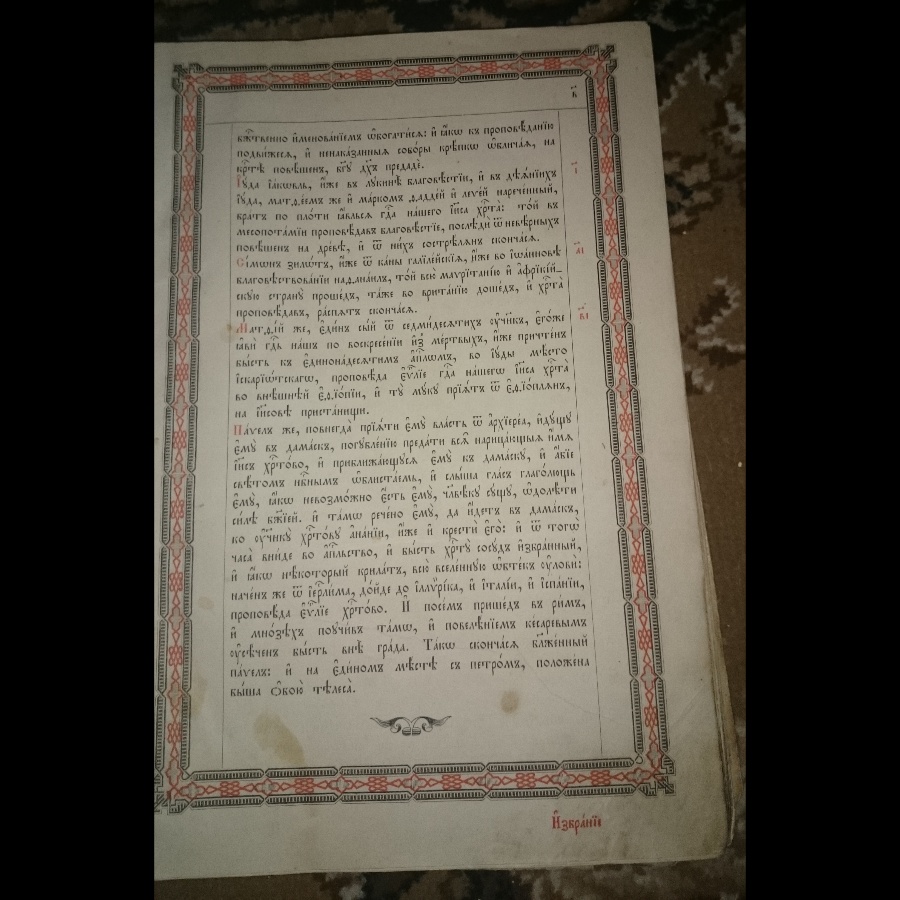 в҃
бж҃твенно и҆менова́нїемъ ѡ҆богати́сѧ: и҆ ꙗ҆́кѡ къ проповѣ́данїю
подви́жесѧ, и҆ ненака́занныѧ собо́ры крѣ́пкѡ ѡ҆блича́ѧ, на
крⷭ҇тѣ̀ повѣ́шенъ, бг҃ꙋ дꙋ́хъ предадѐ.
І҆ꙋ́да і҆а́кѡвль, и҆́же въ лꙋкинѣ̀ благовѣ́стїи, и҆ въ дѣѧ́нїихъ
і҆ꙋ́да, матѳе́емъ же и҆ ма́ркомъ ѳадде́й и҆ леѵе́й нарече́нный,
бра́тъ по пло́ти ꙗ҆́вльсѧ гдⷭ҇а на́шегѡ і҆и҃са хрⷭ҇та̀: то́й въ
месопота́мїи проповѣ́давъ благовѣ́стїе, послѣди́ ѿ невѣ́рныхъ
повѣ́шенъ на дре́вѣ, и҆ ѿ ни́хъ сострѣ́лѧнъ сконча́сѧ.
і҃
Сі́мѡнъ зилѡ́тъ, и҆́же ѿ ка́ны галїле́йскїѧ, и҆́же во і҆ѡа́нновѣ
благовѣ́ствованїи наѳана́илъ, то́й всю̀ маѵрїта́нїю и҆ а҆фрїкі́й-
скꙋю странꙋ̀ проше́дъ, та́же во врита́нїю доше́дъ, и҆ хрⷭ҇та̀
проповѣ́давъ, ра́спѧтъ сконча́сѧ.
а҃і
Матѳі́й же, є҆ди́нъ сы́й ѿ седми́десѧтихъ ᲂу҆чн҃къ, є҆го́же
ꙗ҆вѝ гдⷭ҇ь на́шъ по воскресе́нїи и҆з̾ ме́ртвыхъ, и҆́же причте́нъ
бы́сть къ є҆динона́десѧтимъ а҆пⷭ҇лѡмъ, во і҆ꙋ́ды мѣ́сто
і҆скарїѡ́тскагѡ, проповѣ́да є҆ѵⷢ҇лїе гдⷭ҇а на́шегѡ і҆и҃са хрⷭ҇та̀
во внѣ́шнѣй є҆ѳїо́пїи, и҆ тꙋ̀ мꙋ́кꙋ прїѧ́тъ ѿ є҆ѳїо́плѧнъ,
на і҆и҃совѣ приста́нищи.
в҃і
Па́ѵелъ же, повнегда̀ прїѧ́ти є҆мꙋ̀ вла́сть ѿ а҆рхїере́а, и҆дꙋ́щꙋ
є҆мꙋ̀ въ дама́скъ, погꙋбле́нїю преда́ти всѧ̑ нарица́ющыѧ и҆́мѧ
і҆и҃съ хрⷭ҇то́во, и҆ приближа́ющꙋсѧ є҆мꙋ̀ къ дама́скꙋ, и҆ а҆́бїе
свѣ́томъ нб҃нымъ ѡ҆блиста́емь, и҆ слы́ша гла́съ глаго́лющь
є҆мꙋ̀, ꙗ҆́кѡ невозмо́жно є҆́сть є҆мꙋ̀, чл҃вѣ́кꙋ сꙋ́щꙋ, ѡ҆долѣ́ти
си́лѣ бж҃їей. и҆ та́мѡ рече́но є҆мꙋ̀, да и҆́детъ въ дама́скъ,
ко ᲂу҆чн҃кꙋ̀ хрⷭ҇то́вꙋ а҆на́нїи, и҆́же и҆ крестѝ є҆го̀: и҆ ѿ тогѡ̀
часа̀ вни́де во а҆пⷭ҇льство, и҆ бы́сть хрⷭ҇тꙋ̀ сосꙋ́дъ и҆збра́нный,
и҆ ꙗ҆́кѡ нѣ́который крила́тъ, всю̀ вселе́ннꙋю ѡ҆бте́къ ᲂу҆ловѝ:
наче́нъ же ѿ і҆ерⷭ҇ли́ма, до́йде до і҆ллѷрі́ка, и҆ і҆талі́и, и҆ і҆спа́нїи,
проповѣ́да є҆ѵⷢ҇лїе хрⷭ҇то́во. И҆ посе́мъ прише́дъ въ ри́мъ,
и҆ мно́зѣхъ поꙋчи́въ та́мѡ, и҆ повелѣ́нїемъ ке́саревымъ
ᲂу҆сѣ́ченъ бы́сть внѣ̀ гра́да. Та́кѡ сконча́сѧ бл҃же́нный
па́ѵелъ: и҆ на є҆ди́номъ мѣ́стѣ съ петро́мъ, положе́на
бы́ша ѻ҆бою̀ тѣлеса̀.
И҆збра́нїе